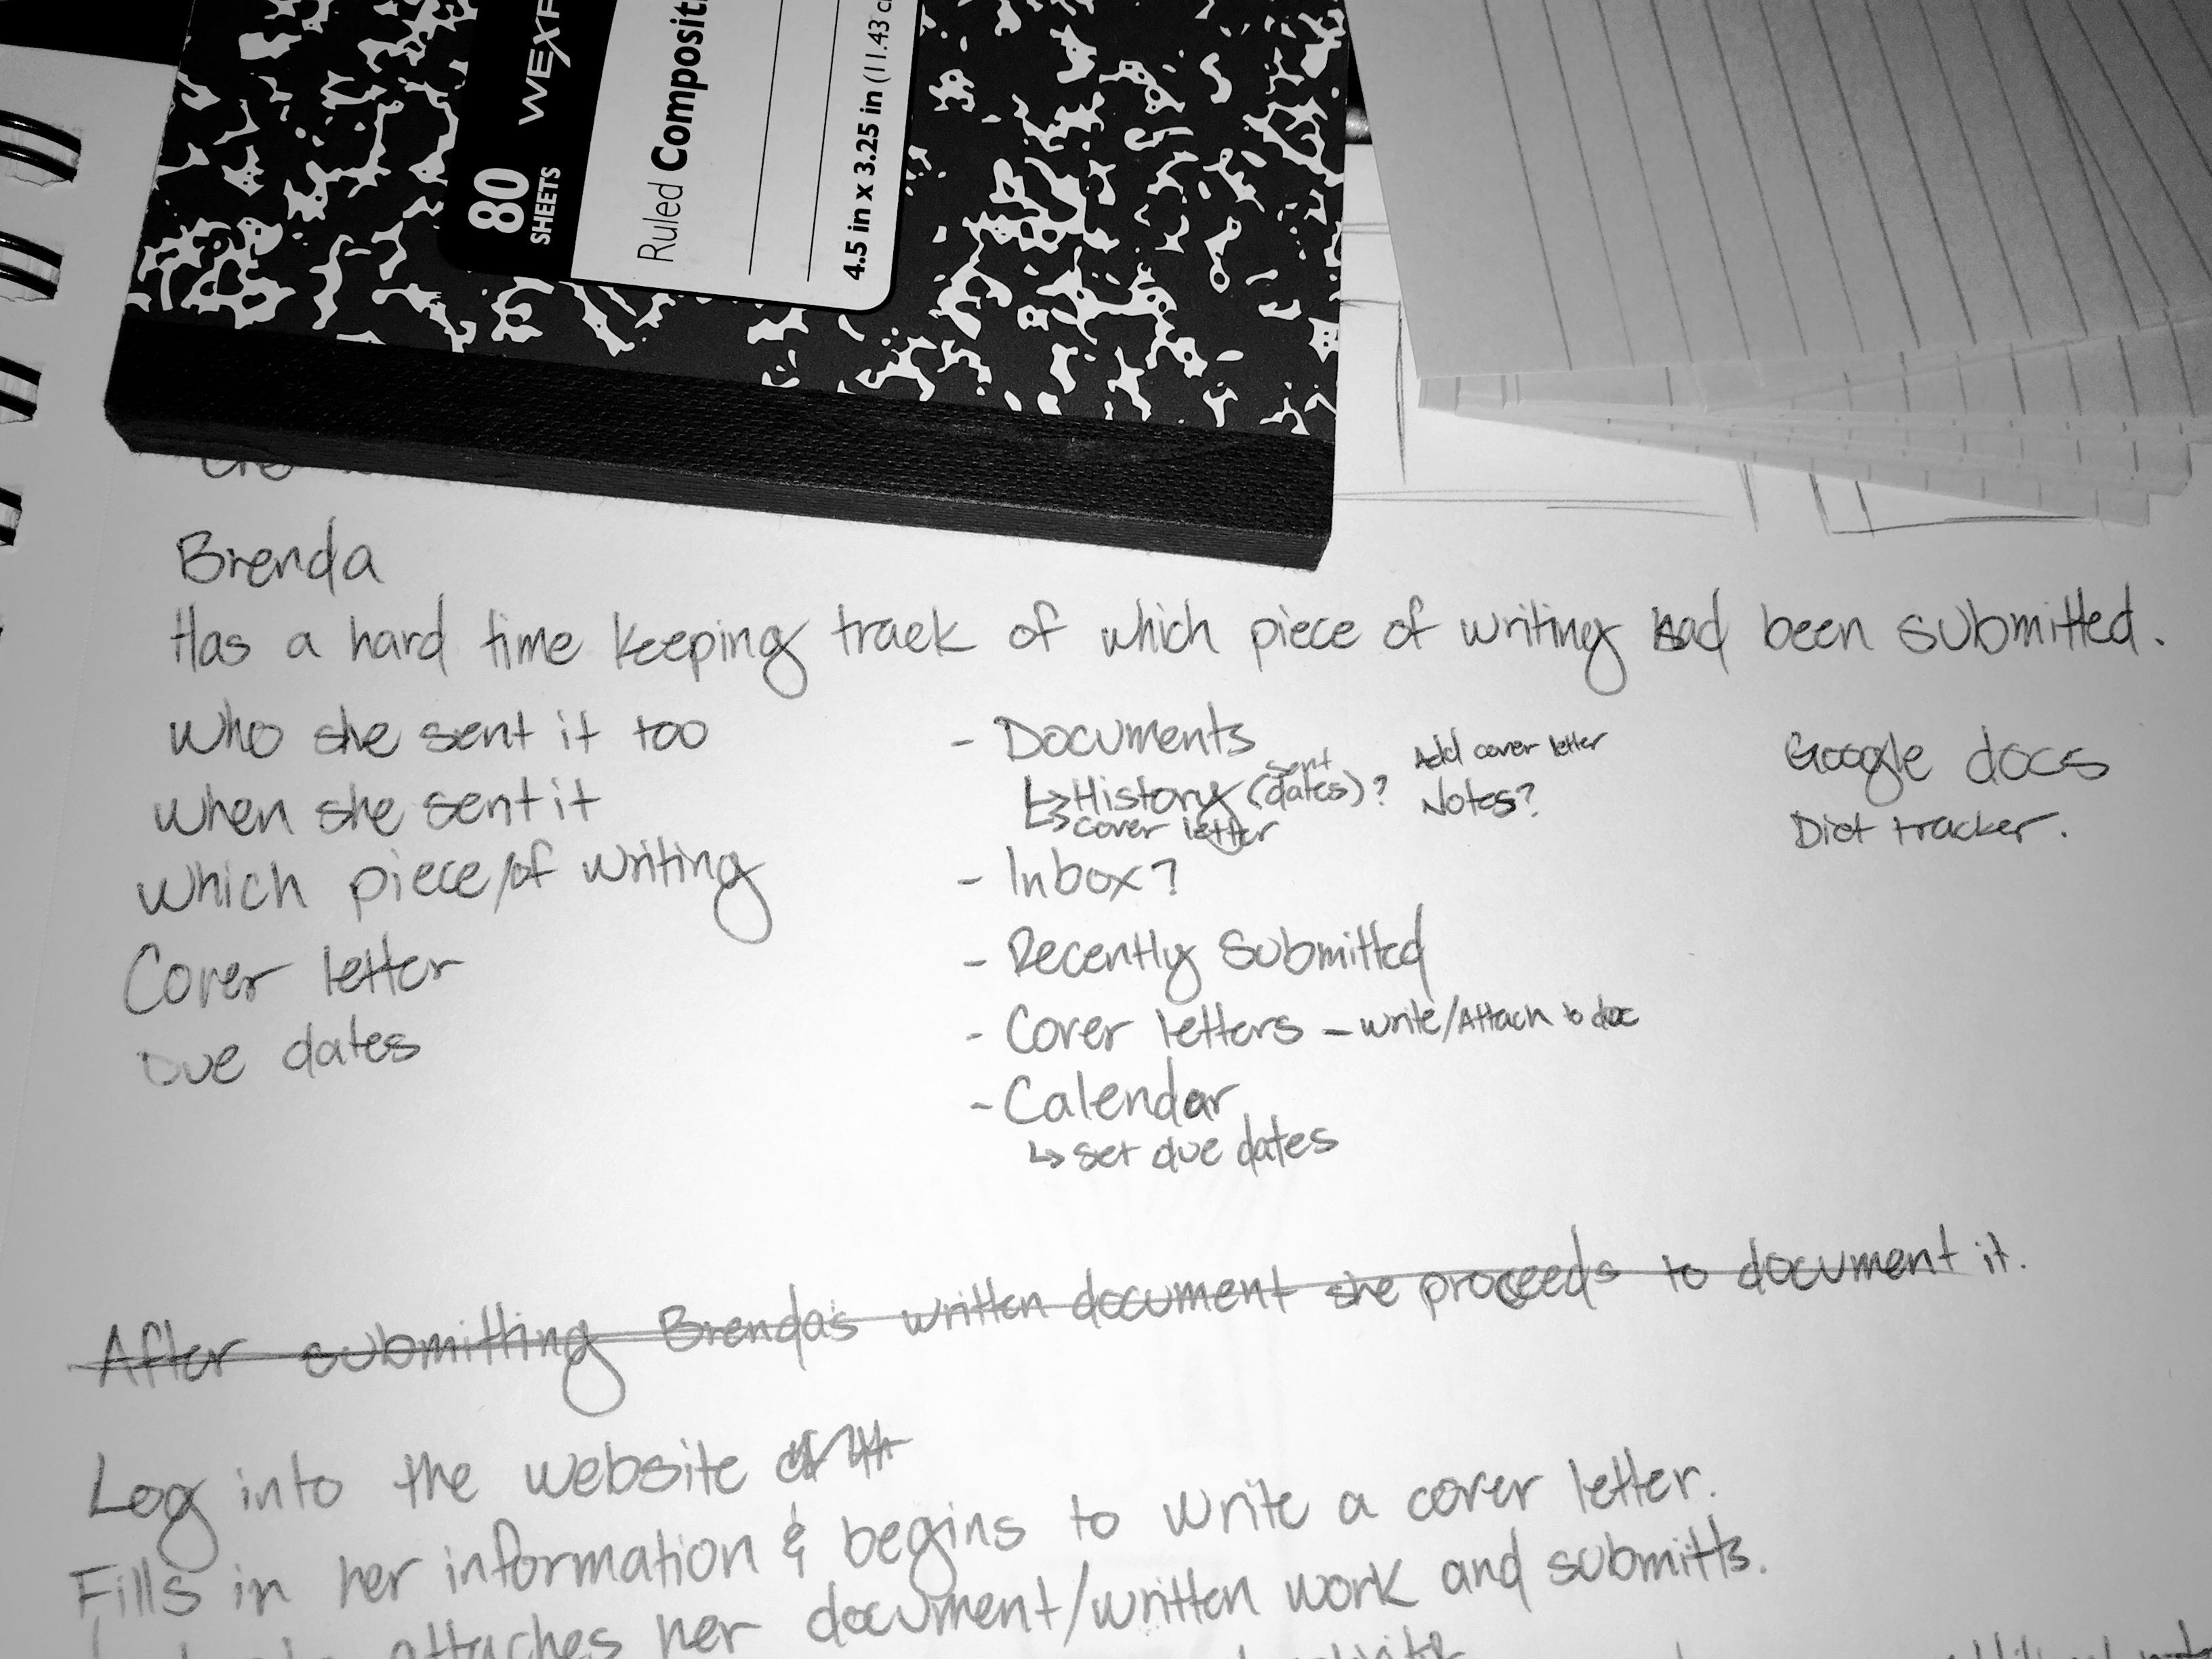 80
SHEETS
Ruled Composit
4.5 in x 3.25 in (11.43 c
Brenda
Has a hard time keeping track of which piece of writing had been submitted.
Who she sent it too
when she sent it
which piece/of writing
Cover letter
Due dates
- Documents
↳ History (dates)?
sent
↳ cover letter
Add cover letter
Notes?
- Inbox?
- Recently Submitted
- Cover letters - write/Attach to doc
- Calendar
↳ set due dates
Google docs
Diet tracker.
After submitting Brenda's written document she proceeds to document it.
Log into the website
Fills in her information & begins to write a cover letter.
attaches her document/written work and submitts.